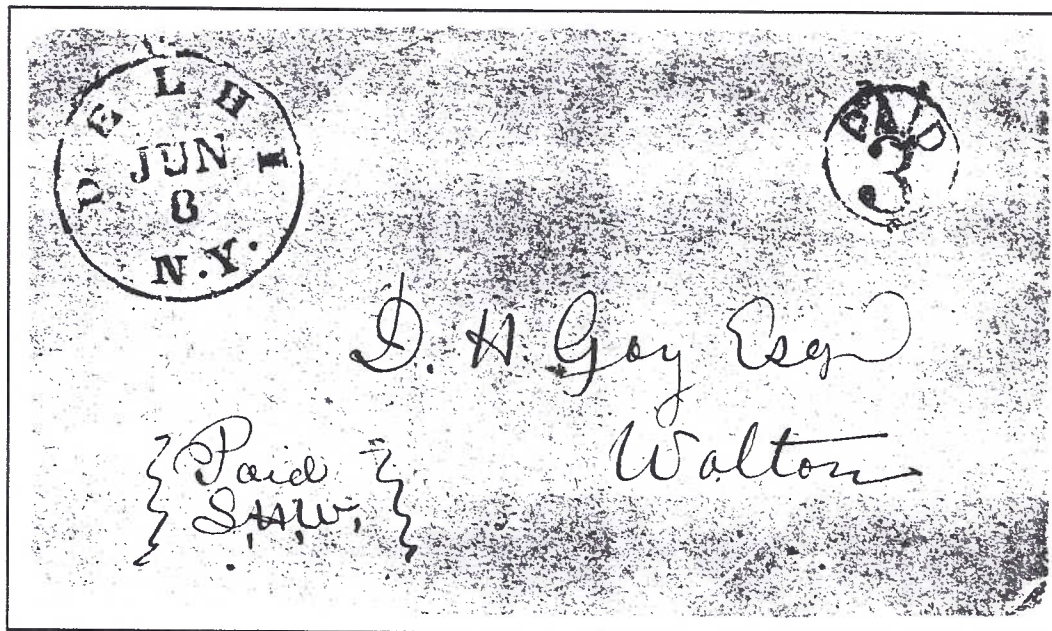 DELHI
JUN
8
N.Y.
PAID
3
D. H. Gay Esq
Walton
Paid
S.H.W.